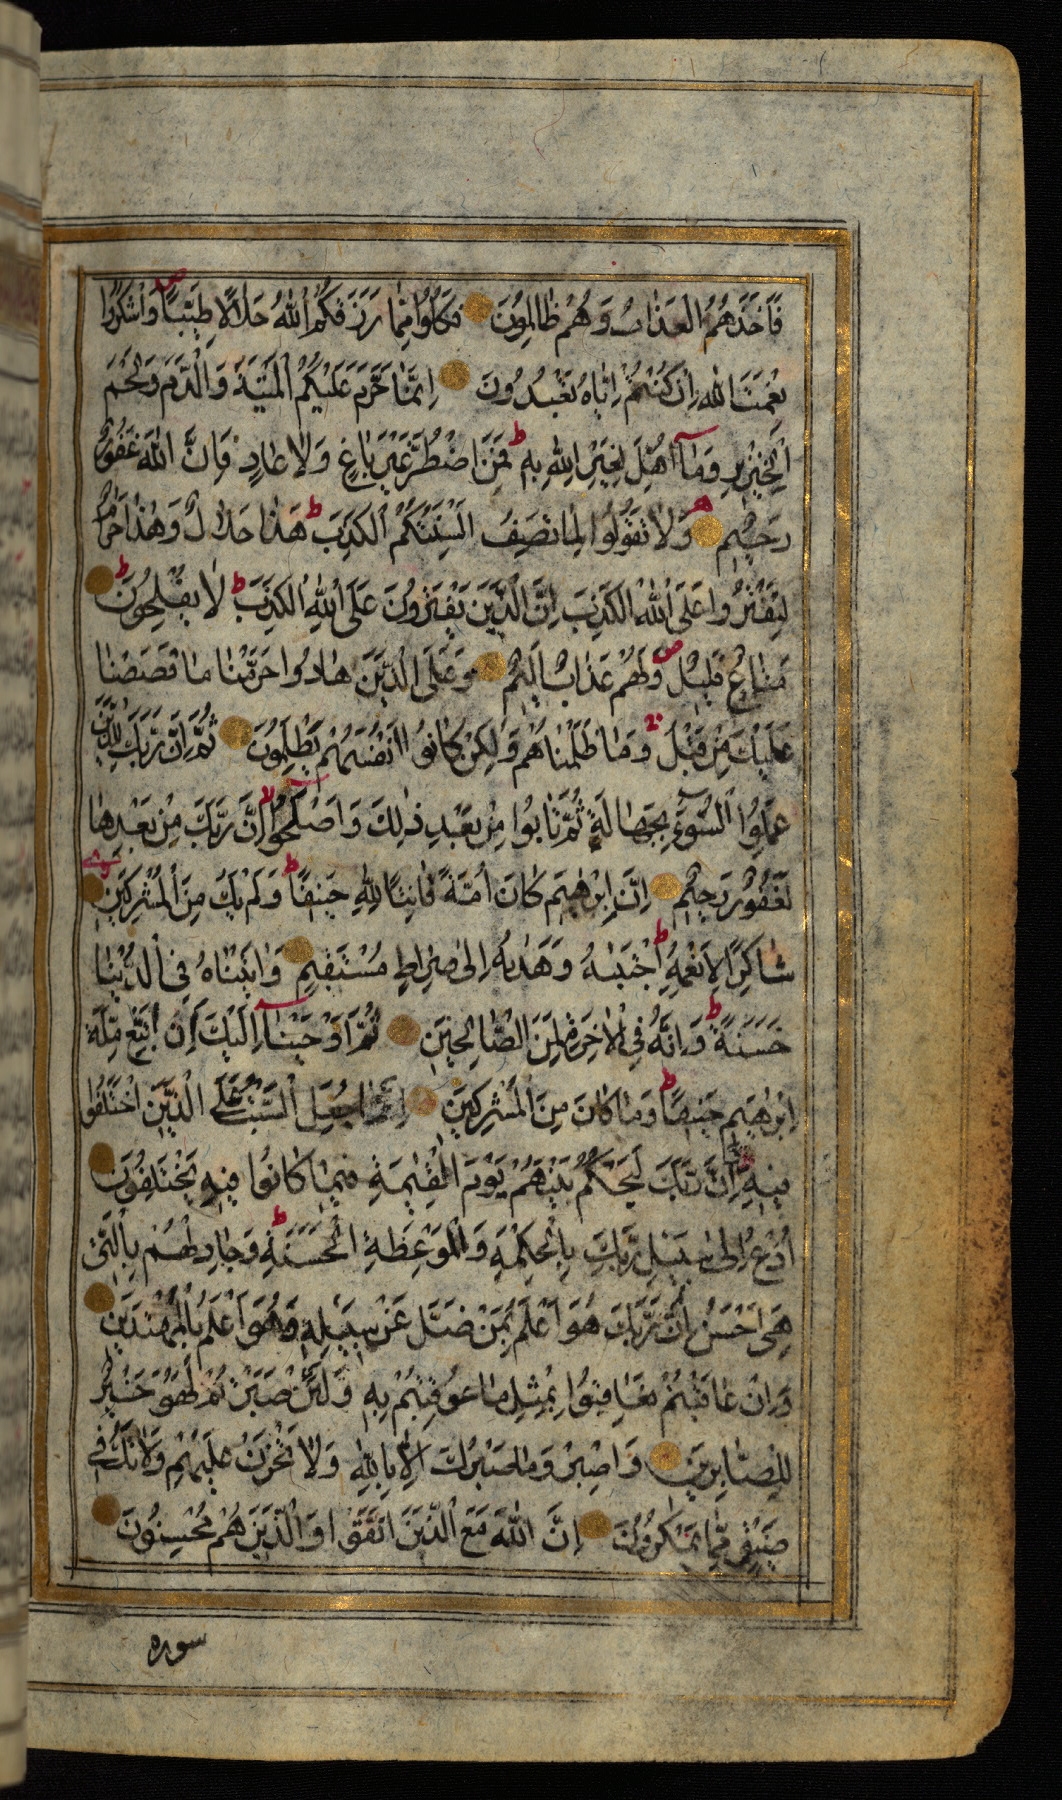 فَاَخَذَهُمُ الْعَذَابُ وَهُمْ ظَالِمُونَ فَكُلُوا مِمَّا رَزَقَكُمُ اللّٰهُ حَلَالًا طَيِّبًا وَاشْكُرُوا
نِعْمَتَ اللّٰهِ اِنْ كُنْتُمْ اِيَّاهُ تَعْبُدُونَ اِنَّمَا حَرَّمَ عَلَيْكُمُ الْمَيْتَةَ وَالدَّمَ وَلَحْمَ
الْخِنْزِيرِ وَمَآ اُهِلَّ لِغَيْرِ اللّٰهِ بِهِ فَمَنِ اضْطُرَّ غَيْرَ بَاغٍ وَلَا عَادٍ فَاِنَّ اللّٰهَ غَفُورٌ
رَحِيمٌ وَلَا تَقُولُوا لِمَا تَصِفُ اَلْسِنَتُكُمُ الْكَذِبَ هَذَا حَلَالٌ وَهٰذَا حَرَامٌ
لِتَفْتَرُوا عَلَى اللّٰهِ الْكَذِبَ اِنَّ الَّذِينَ يَفْتَرُونَ عَلَى اللّٰهِ الْكَذِبَ لَا يُفْلِحُونَ
مَتَاعٌ قَلِيلٌ وَلَهُمْ عَذَابٌ اَلِيمٌ وَعَلَى الَّذِينَ هَادُوا حَرَّمْنَا مَا قَصَصْنَا
عَلَيْكَ مِنْ قَبْلُ وَمَا ظَلَمْنَاهُمْ وَلٰكِنْ كَانُوا اَنْفُسَهُمْ يَظْلِمُونَ ثُمَّ اِنَّ رَبَّكَ لِلَّذِينَ
عَمِلُوا السُّوٓءَ بِجَهَالَةٍ ثُمَّ تَابُوا مِنْ بَعْدِ ذٰلِكَ وَاَصْلَحُوٓا اِنَّ رَبَّكَ مِنْ بَعْدِهَا
لَغَفُورٌ رَحِيمٌ اِنَّ اِبْرٰهِيمَ كَانَ اُمَّةً قَانِتًا لِلّٰهِ حَنِيفًا وَلَمْ يَكُ مِنَ الْمُشْرِكِينَ
شَاكِرًا لِاَنْعُمِهِ اجْتَبٰهُ وَهَدٰهُ اِلٰى صِرَاطٍ مُسْتَقِيمٍ وَاٰتَيْنَاهُ فِى الدُّنْيَا
حَسَنَةً وَاِنَّهُ فِى الْاٰخِرَةِ لَمِنَ الصَّالِحِينَ ثُمَّ اَوْحَيْنَآ اِلَيْكَ اَنِ اتَّبِعْ مِلَّةَ
اِبْرٰهِيمَ حَنِيفًا وَمَا كَانَ مِنَ الْمُشْرِكِينَ اِنَّمَا جُعِلَ السَّبْتُ عَلَى الَّذِينَ اخْتَلَفُوا
فِيهِ وَاِنَّ رَبَّكَ لَيَحْكُمُ بَيْنَهُمْ يَوْمَ الْقِيٰمَةِ فِيمَا كَانُوا فِيهِ يَخْتَلِفُونَ
اُدْعُ اِلٰى سَبِيلِ رَبِّكَ بِالْحِكْمَةِ وَالْمَوْعِظَةِ الْحَسَنَةِ وَجَادِلْهُمْ بِالَّتِى
هِىَ اَحْسَنُ اِنَّ رَبَّكَ هُوَ اَعْلَمُ بِمَنْ ضَلَّ عَنْ سَبِيلِهِ وَهُوَ اَعْلَمُ بِالْمُهْتَدِينَ
وَاِنْ عَاقَبْتُمْ فَعَاقِبُوا بِمِثْلِ مَا عُوقِبْتُمْ بِهِ وَلَئِنْ صَبَرْتُمْ لَهُوَ خَيْرٌ
لِلصَّابِرِينَ وَاصْبِرْ وَمَا صَبْرُكَ اِلَّا بِاللّٰهِ وَلَا تَحْزَنْ عَلَيْهِمْ وَلَا تَكُ فِى
ضَيْقٍ مِمَّا يَمْكُرُونَ اِنَّ اللّٰهَ مَعَ الَّذِينَ اتَّقَوْا وَالَّذِينَ هُمْ مُحْسِنُونَ
سوره